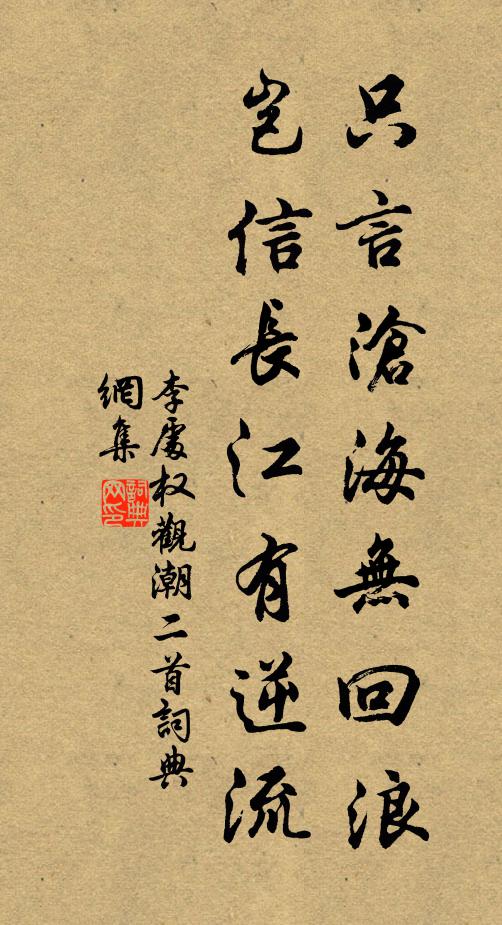 只言滄海無回浪
豈信長江有逆流
李處权觀潮二首詞典
網集
詞典
网印